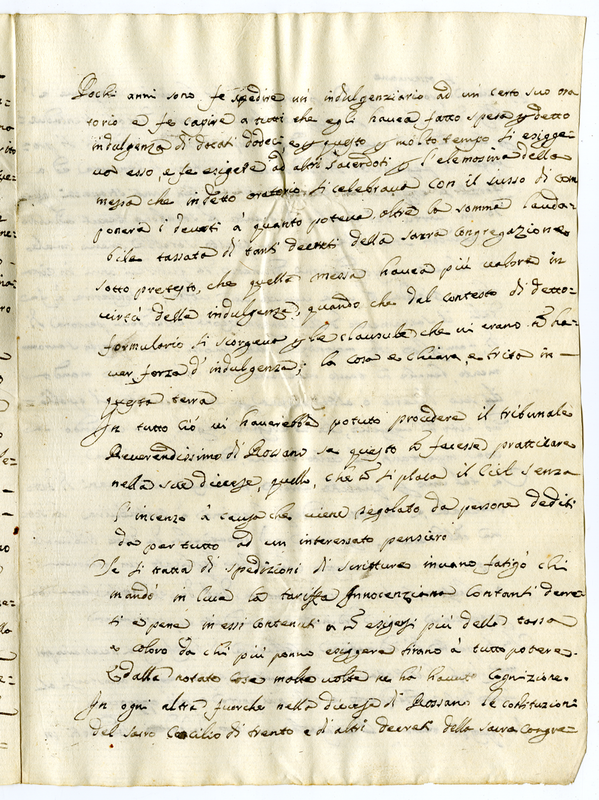 Pochi anni sono fe spedire un indulgenziario ad un certo suo ora
torio e fe capire a tutti che egli havea fatto spesa p detto
indulgenza di docati dodeci e p questo p molto tempo si esigge-
va esso, e fe esigere ad altri sacerdoti p l'elemosina della
messa che in detto oratorio si celebrava con il lusso di com
ponere i devoti à quanto poteva, oltre la somma lauda-
bile tassata di tanti decreti della sacra congregazione
sotto pretesto, che quella messa havea più valore in
virtù della indulgenza, quando che dal contesto di detto
formulario si scorgeva p le clausule che vi erano nõ ha-
ver forza d'indulgenza; la cosa e chiara, e trita in
questa terra
In tutto ciò vi haverebbe potuto procedere il tribunale
Reverendissimo di Rossano se questo nõ facesse pratticare
nella sua diocese, quello, che nõ si placa il Ciel senza
l'incenzo à causa che viene regolato da persone dediti
da per tutto ad un interessato pensiero
Se si tratta di spedizioni di scritture invano fatigò chi
mandò in luce la tariffa Innocenziana con tanti decre
ti e pene in essi contenuti a nõ esigersi più della tassa
e coloro da chi più ponno esiggere tirano à tutto potere.
E dalla notato cosa molte volte ne hà havuto Cognizione.
In ogni altra fuorche nella diocese di Rossano le costituzioni
del sacro Concilio di trento e di altri decreti della sacra Congre=